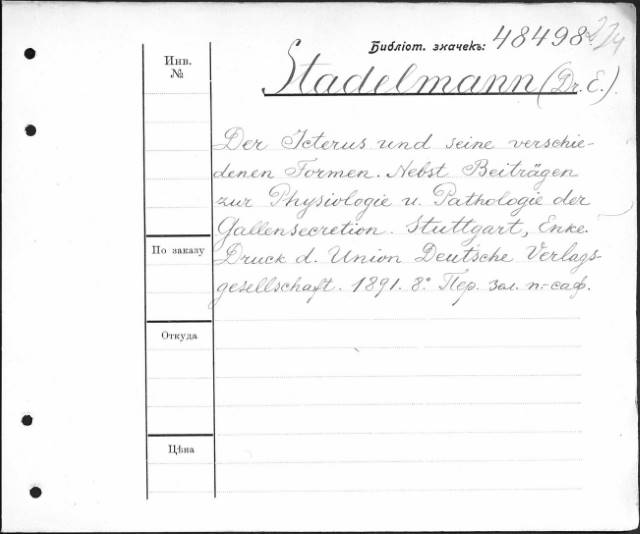 Библіот. значекъ: 48498
Инв. №
Stadelmann (Dr. E.).
Der Icterus und seine verschie-
denen Formen. Nebst Beiträgen
zur Physiologie u. Pathologie der
Gallensecretion. Stuttgart, Enke.
По заказу
Druck d. Union Deutsche Verlags-
gesellschaft. 1891. 8º Пер. зол. п.-саф.
Откуда
Цѣна